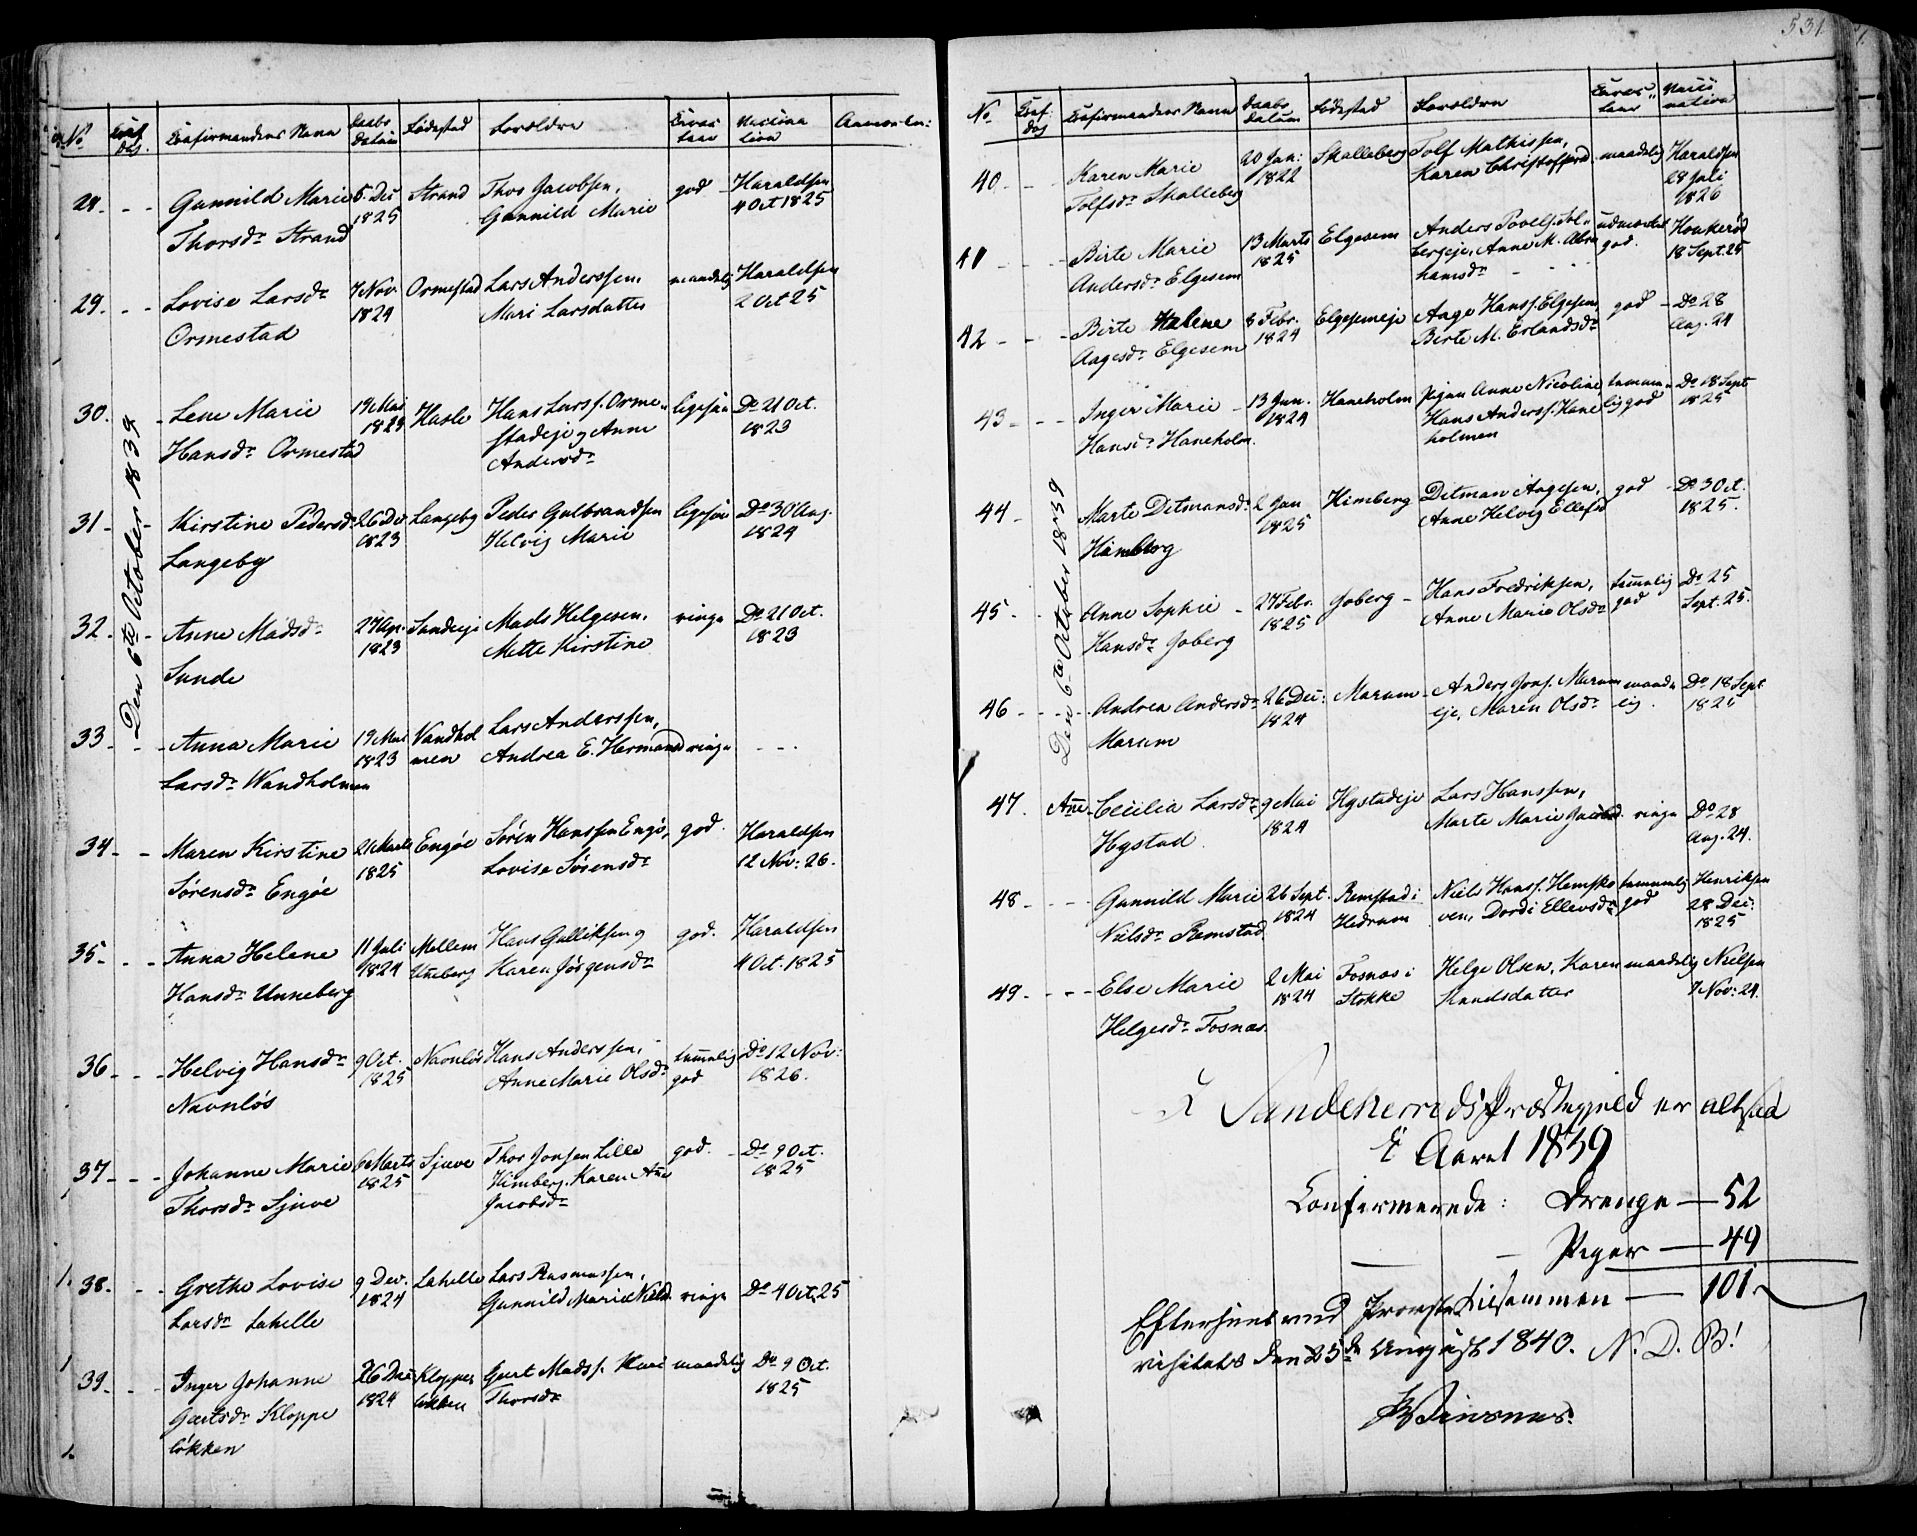 531.
No Conf. Dag. Confirmandens Navn Daabs Datum Fødested Forældre Vaccina tion Anmærkn:
28. Gunnild Marie Thorsdr Strand 5. Dec 1825 Strand Thor Jacobsen, Gunnild Marie god Haraldsen 4 Oct 1825
29. Lovise Larsdr Ormestad 7 Nov. 1824 Ormestad Lars Anderssen, Mari Larsdatter maadelig Haraldsen 2 Oct 25
Den 6te October 1839
30. Lene Marie Hansdr Ormestad 19 Mai 1823 Hasle Hans Larss. Orme„ stadeje og Anne Andersdr ligesaa Do 21 Oct. 1823
31 Kirstine Pedersdr Langeby 26 De 1823 Langeby Peder Gulbrandsen Helvig Marie ligesaa Do 30 Aug. 1824
32. Anne Madsdr Sunde 27 Apr. 1823 Sundeeje Mads Helgesen, Mette Kirstine ringe Do 21 Oct. 1823
33 Anna Marie Larsdr Wandholmen 19 Mai 1823 Vandhol men Lars Anderssen, Andrea E. Hermansd ringe
34 Maren Kirstine Sørensdr Engøe 21 Marts 1825 Engøe Søren Hanssen Engø, Lovise Sørensdr god. Haraldsen 12 Nov: 26.
35 Anna Helene Hansdr Unneberg 11 Juli 1824 Mellem Uneberg Hans Gulliksen og Karen Jørgensdr god. Haraldsen 4 Oct. 1825
36 Helvig Hansdr Navnløs 9 Oct. 1825 Navnløs Hans Anderssen, Anne Marie Olsdr temmelig god Do 12 Nov: 1826.
37 Johanne Marie Thorsdr Sjuve 6 Marts 1825 Sjuve Thor Jonsen Lille Himberg, Karen Ane Jacobsdr god. Do 9 Oct. 1825
38. Grethe Lovise Larsdr Lahelle 9 Dec. 1824 Lahelle Lars Rasmussen, Gunnild Marie Nielsd ringe Do 4 Oct. 25
39. Inger Johanne Gaertsdr Kloppe løkken 26 Dec 1824 Kloppe løkken Gaert Madss. Thorsdr maadelig Do 9 Oct. 1825
No Conf. Dag Confirmandens Navn Daabs Datum Fødested Forældre Vacci nation
40 Karen Marie Tolfsdr Skalleberg 20 Jan: 1822 Skalleberg Tolf Mathissen, Karen Christoffersd maadelig Haraldsen 28 Juli 1826
41 Birte Marie Andersdr Elgesem 13 Marts 1825 Elgesem Anders Povels. Sol„ bergeje, Anne M. Abra hamsdr udmærket god. Houkerød 18 Sept. 25
42 Birte Helene Aagesdr Elgesem 8 Febr. 1824 Elgesemeje Aage Hanss. Elgesem, Birte M. Erlandsdr god Do 28 Aug. 24
43 Inger Marie Hansdr Haneholm 13 Jun. 1824 Haneholm Pigen Anne Nicoline Hans Anderss. Hane holmen temme„ lig god Do 18 Sept 1825
Den 6te October 1839
44 Marte Ditmansdr Himberg 2 Jan 1825 Himberg Ditman Aagesen, Anne Helvig Ellefsd god Do 3 Oct. 1825.
45 Anne Sophie Hansdr Goberg 27 Febr. 1825 Goberg Hans Fredriksen, Anne Marie Olsdr temmelig god Do 25 Sept. 25.
46 Andrea Andersdr Marum 26 Dec: 1824 Marum Anders Jons. Marum eje, Maren Olsdr maade lig. Do 18 Sept 1825
47. Ane Cecilia Larsdr Hystad 9 Mai 1824 Hystadeje Lars Hanssen, Marte Marie Jacobsd ringe Do 28 Aug. 24.
48 Gunnild Marie Nielsdr Ramstad 26 Sept. 1824 Remstad i Hedrum Niels Hanss. Hemsko ven, Dordi Ellevsdr temmelig god Henriksen 28 Dec: 1825
49 Else Marie Helgesdr Fosnas. 2 Mai 1824 Fosnas i Stokke Helge Olsen, Karen Knudsdatter maadelig Nielsen 7 Nov: 24.
I Sandeherreds Præstegjeld er altsaa
i Aaret 1839
Confirmerede: Drenge — 52
Piger — 49
Tilsammen — 101.
Efterseet ved Provste
visitats den 25de August 1840. N. D. B!